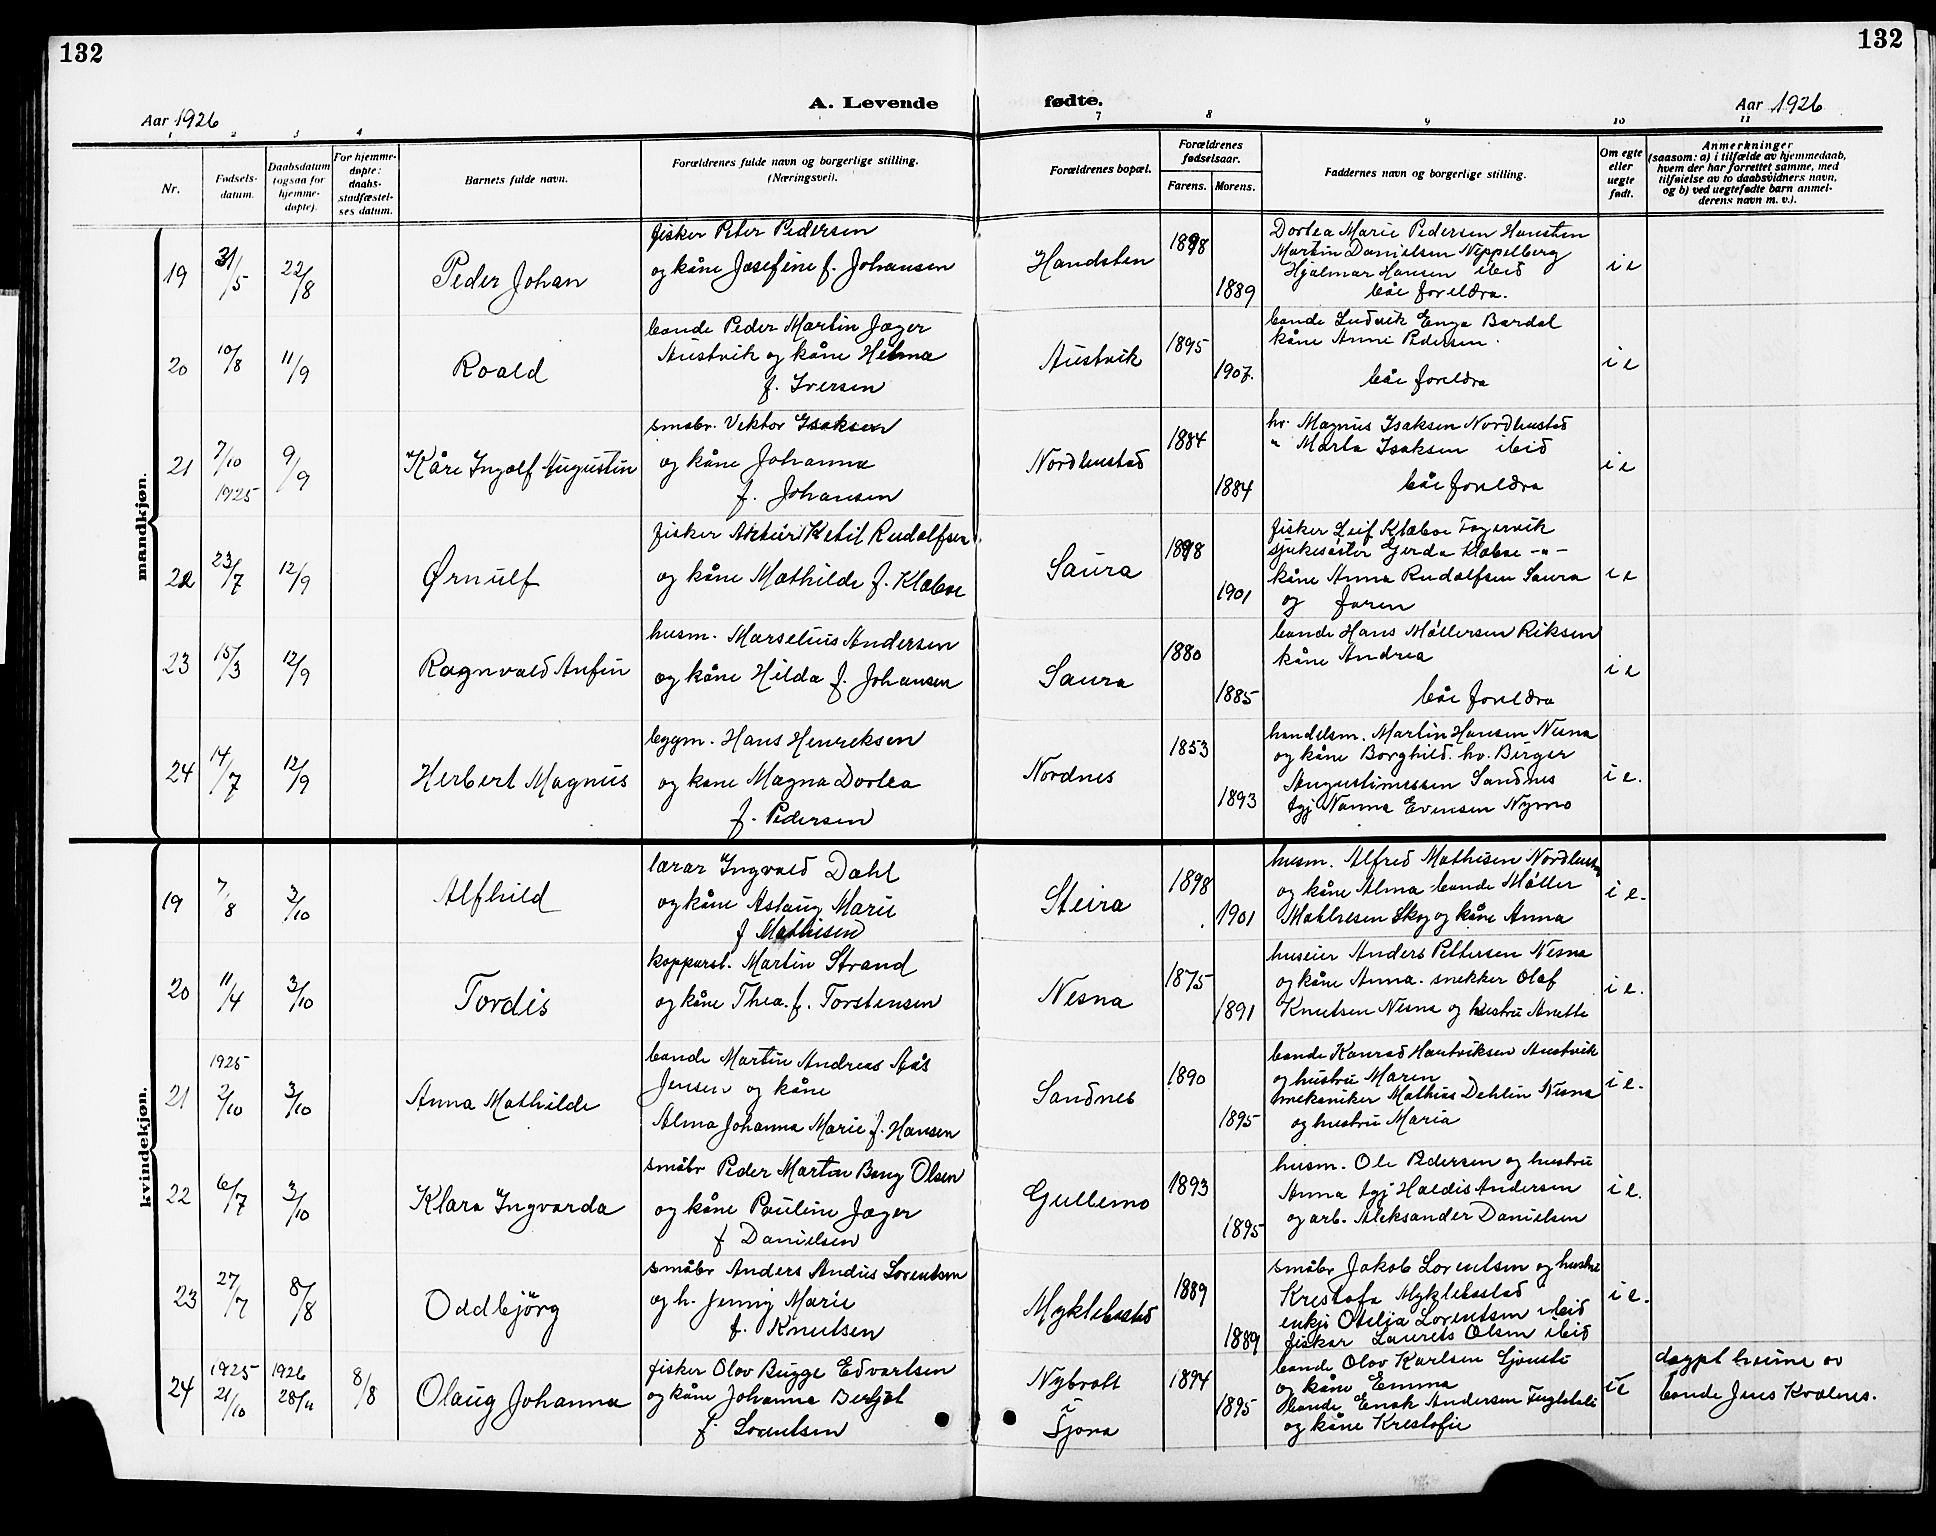 132
132
A. Levende fødte.
Aar 1926
Aar 1926
1 2 3 4 7 8 9 10 11
Nr.
Fødsels-
datum.
Daabsdatum
(ogsaa for
hjemme-
døpte).
For hjemme-
døpte:
daabs-
stadfæstel-
ses datum.
Barnets fulde navn.
Forældrenes fulde navn og borgerlige stilling.
(Næringsvei).
Forældrenes bopæl.
Forældrenes
fødselsaar.
Farens. Morens.
Faddernes navn og borgerlige stilling.
Om egte
eller
uegte
født.
Anmerkninger
(saasom: a) i tilfælde av hjemmedaab,
hvem der har forrettet samme, med
tilføielse av to daabsvidners navn,
og b) ved uegtefødte barn anmel-
derens navn m. v.).
mandkjøn.
19 31/5 22/8 Peder Johan
fisker Peter Pedersen
og kåne Josefine f. Johansen
Handsten 1898 1889
Dortea Marie Pedersen Hansten
Martin Danielsen Neppelberg
Hjalmar Hansen ibid
båe foreldra.
i e
20 10/8 11/9 Roald
bonde Peder Martin Jæger
Austvik og kåne Helma
f. Iversen
Austvik 1895 1907.
bonde Ludvik Enge Bardal
kåne Anne Pedersen.
båe foreldra
i e
21 7/10 1925 9/9 Kåre Ingolf Augustin
småbr. Vektor Isaksen
og kåne Johanna
f. Johansen
Nordhustad 1884 1884
hr. Magnus Isaksen Nordhustad
" Marta Isaksen ibid
båe foreldra
i e
22 23/7 12/9 Ørnulf
fisker Artur Ketil Rudolfsen
og kåne Mathilde f. Klæboe
Saura 1898 1901
fisker Leif Klæboe Fagervik
sjukesøster Gerda Klæboe -"-
kåne Anna Rudolfsen Saura
og faren
i e
23 15/3 12/9 Ragnvald Anfin
husm. Marselius Andersen
og kåne Hilda f. Johansen
Saura 1880 1885
bonde Hans Møllersen Riksen
kåne Andrea
båe foreldra
i e
24 14/7 12/9 Herbert Magnus
bygm. Hans Henreksen
og kåne Magna Dortea
f. Pedersen
Nordnes 1853 1893
handelsm. Martin Hansen Nesna
og kåne Borghild. hr. Birger
Augustinussen Sandnes
tgj Nanna Evensen Nymo
i e.
kvindekjøn.
19 7/8 3/10 Alfhild
lærar Ingvald Dahl
og kåne Aslaug Marie
f Mathisen
Steira 1898 1901
husm. Alfred Mathisen Nordhustad
og kåne Alma bonde Møller
Mathisen Skog og kåne Anna
i e.
20 11/4 3/10 Tordis
kopparsl. Martin Strand
og kåne Thea. f. Torstensen
Nesna 1875 1891
huseier Anders Pettersen Nesna
og kåne Anna. snekker Olaf
Knutsen Nesna og hustru Anette
i e.
21 1925 2/10 3/10 Anna Mathilde
bonde Martin Andreas Aas
Jensen og kåne
Alma Johanna Marie f. Hansen
Sandnes 1890 1895
bonde Konrad Hartviksen Austvik
og hustru Maren
mekaniker Mathias Dehlin Nesna
og hustru Maria
i e.
22 6/7 3/10 Klara Ingvarda
småbr Peder Martin Bang Olsen
og kåne Pauline Jæger
f Danielsen
Gullesmo 1893 1895
husm. Ole Pedersen og hustru
Anna tgj Haldis Andersen
og arb. Aleksander Danielsen
i e.
23 27/7 8/8 Oddbjörg
småbr Anders Andius Lorentsen
og h. Jenny Marie
f. Knutsen
Myklebustad 1889 1889
småbr Jakob Lorentsen og hustru
Krestofa Myklebustad
enkje Otelia Lorentsen ibid
fiskar Laurets Olsen ibid
i e.
24 1925 21/10 1926 28/11 8/8 Olaug Johanna
fisker Olav Bugge Edvartsen
og kåne Johanna Bergat
f. Lorentsen
Nybrott
i
Sjona 1894 1895
bonde Olov Karlsen Sjonsti
og kåne Emma
bonde Enok Andersen Fuglstali
og kåne Krestofie
i e
døypt heime av
bonde Jens Kvalnes.